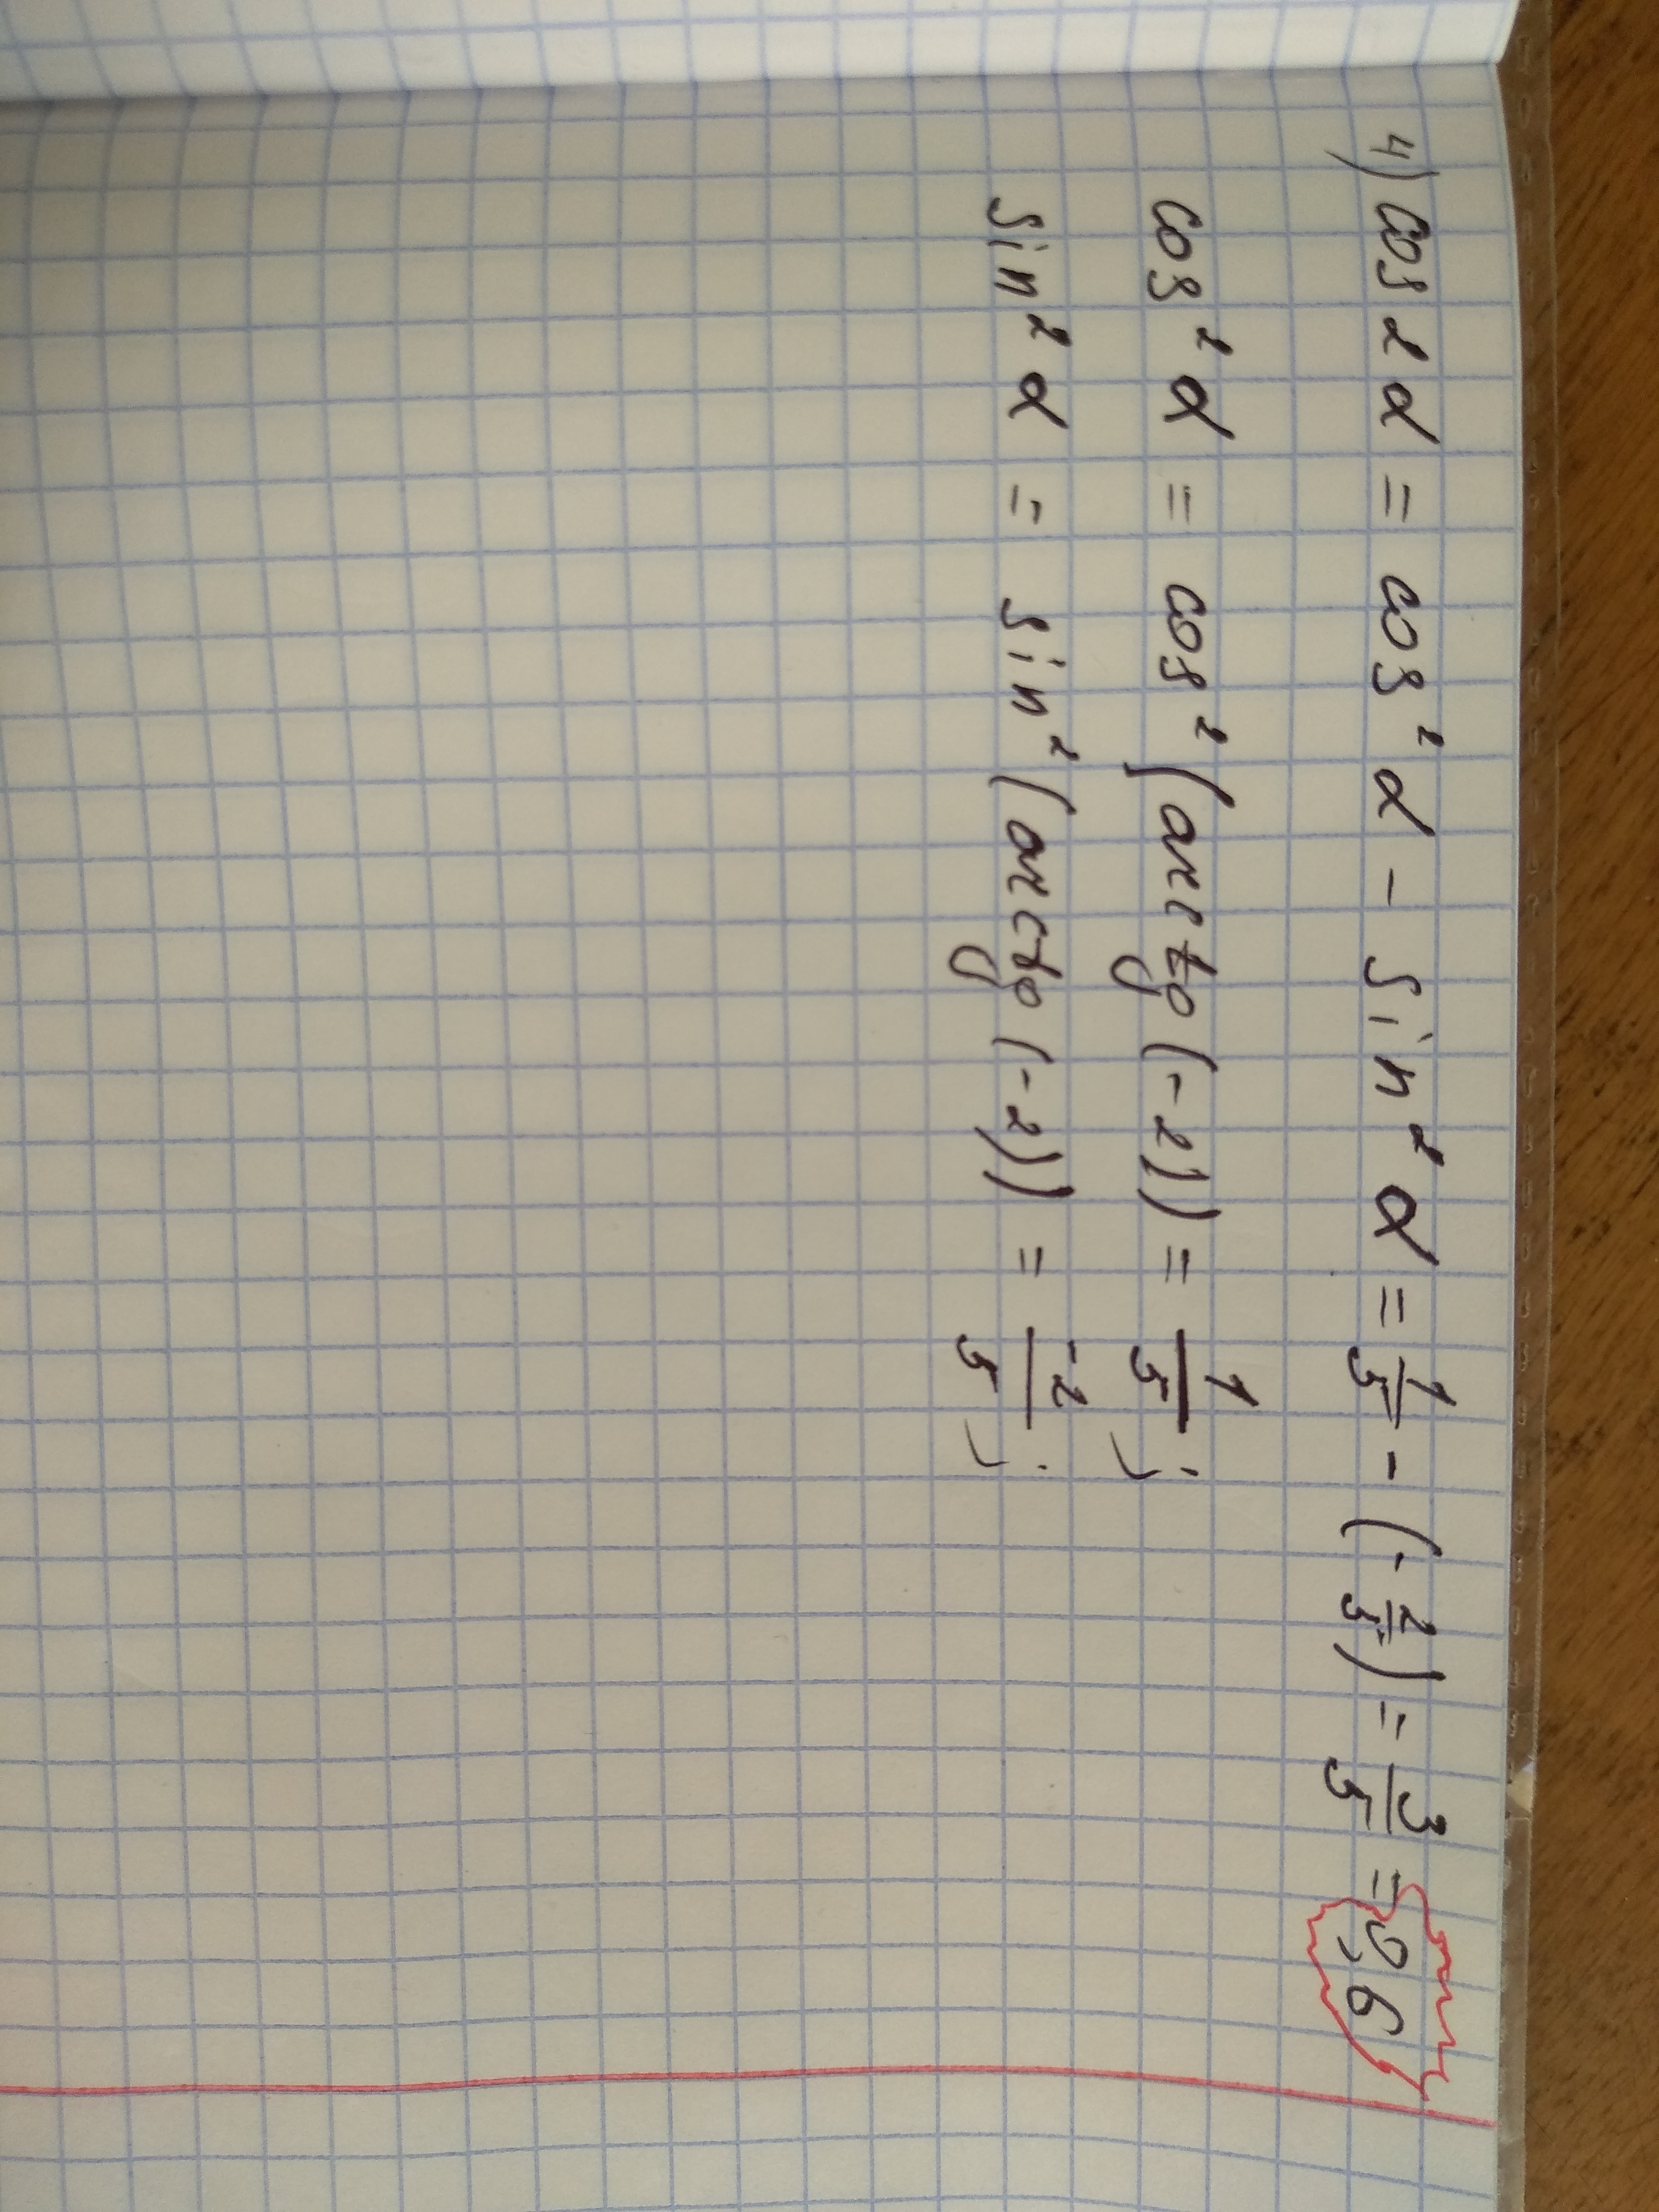 4) cos 2α = cos² α - sin² α = 1/5 - (-2/5) = 3/5 = 0,6
cos² α = cos² (arctg (-2)) = 1/5 ;
sin² α = sin² (arctg (-2)) = -2/5 ;